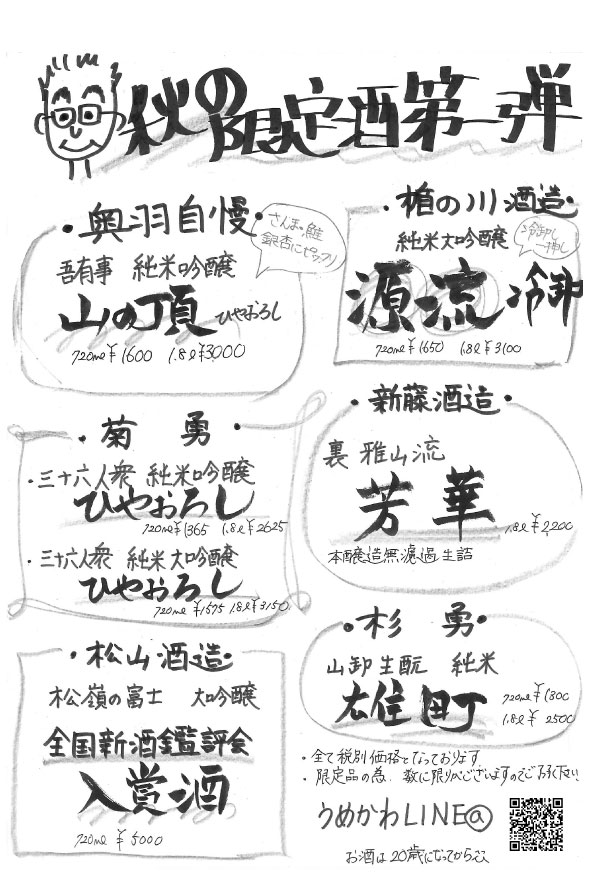 秋の限定酒第一弾
・奥羽自慢・
さんま・鮭
銀杏にピッタリ
吾有事 純米吟醸
山の頂 ひやおろし
720ml ¥1600 1.8l ¥3000
・楯の川酒造・
純米大吟醸
冷卸し
一押し
源流冷卸
720ml ¥1650 1.8l ¥3100
・菊勇・
・三十六人衆 純米吟醸
ひやおろし
720ml ¥1365 1.8l ¥2625
・三十六人衆 純米大吟醸
ひやおろし
720ml ¥1575 1.8l ¥3150
・新藤酒造・
裏 雅山流
芳華
1.8l ¥2,200
本醸造無濾過生詰
・松山酒造・
松嶺の富士 大吟醸
全国新酒鑑評会
入賞酒
720ml ¥5000
・杉勇・
山卸生酛 純米
雄町
720ml ¥1300
1.8l ¥2500
・全て税別価格となっております
・限定品の為、数に限りがございますのでご了承下さい
うめかわLINE@
お酒は20歳になってから